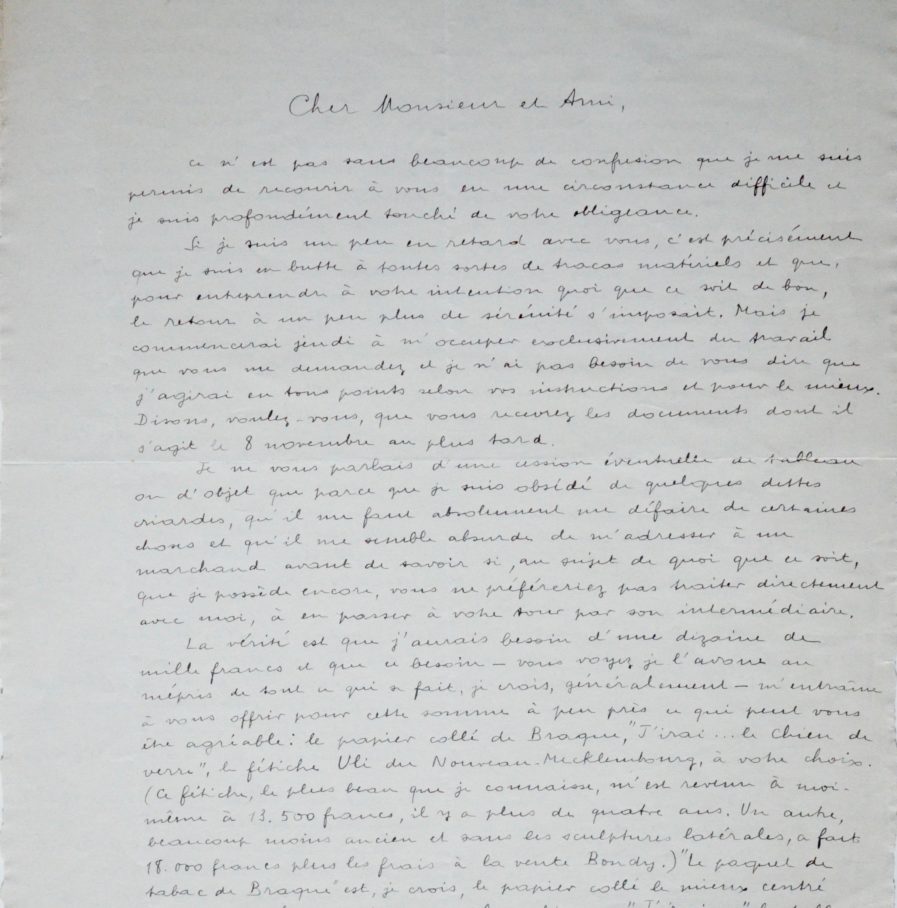 Cher Monsieur et Ami,
Ce n'est pas sans beaucoup de confusion que je me suis
permis de recourir à vous en une circonstance difficile et
je suis profondément touché de votre obligeance.
Si je suis un peu en retard avec vous, c'est précisément
que je suis en butte à toutes sortes de tracas matériels et que,
pour entreprendre à votre intention quoi que ce soit de bon,
le retour à un peu plus de sérénité s'imposait. Mais je
commencerai jeudi à m'occuper exclusivement du travail
que vous me demandez et je n'ai pas besoin de vous dire que
j'agirai en tous points selon vos instructions et pour le mieux.
Disons, voulez-vous, que vous recevrez les documents dont il
s'agit le 8 novembre au plus tard.
Je ne vous parlais d'une cession éventuelle de tableau
ou d'objet que parce que je suis obsédé de quelques dettes
criardes, qu'il me faut absolument me défaire de certaines
choses et qu'il me semble absurde de m'adresser à un
marchand avant de savoir si, au sujet de quoi que ce soit,
que je possède encore, vous ne préféreriez pas traiter directement
avec moi, à en passer à votre tour par son intermédiaire.
La vérité est que j'aurais besoin d'une dizaine de
mille francs et que ce besoin — vous voyez, je l'avoue au
mépris de tout ce qui se fait, je crois, généralement — m'entraîne
à vous offrir pour cette somme à peu près ce qui peut vous
être agréable : le papier collé de Braque, "J'irai... le chien de
verre", le fétiche Uli du Nouveau-Mecklembourg, à votre choix.
(Ce fétiche, le plus beau que je connaisse, m'est revenu à moi-
même à 13.500 francs, il y a plus de quatre ans. Un autre,
beaucoup moins ancien et sans les sculptures latérales, a fait
18.000 francs plus les frais à la vente Bondy.) "Le paquet de
tabac de Braque" est, je crois, le papier collé le mieux centré